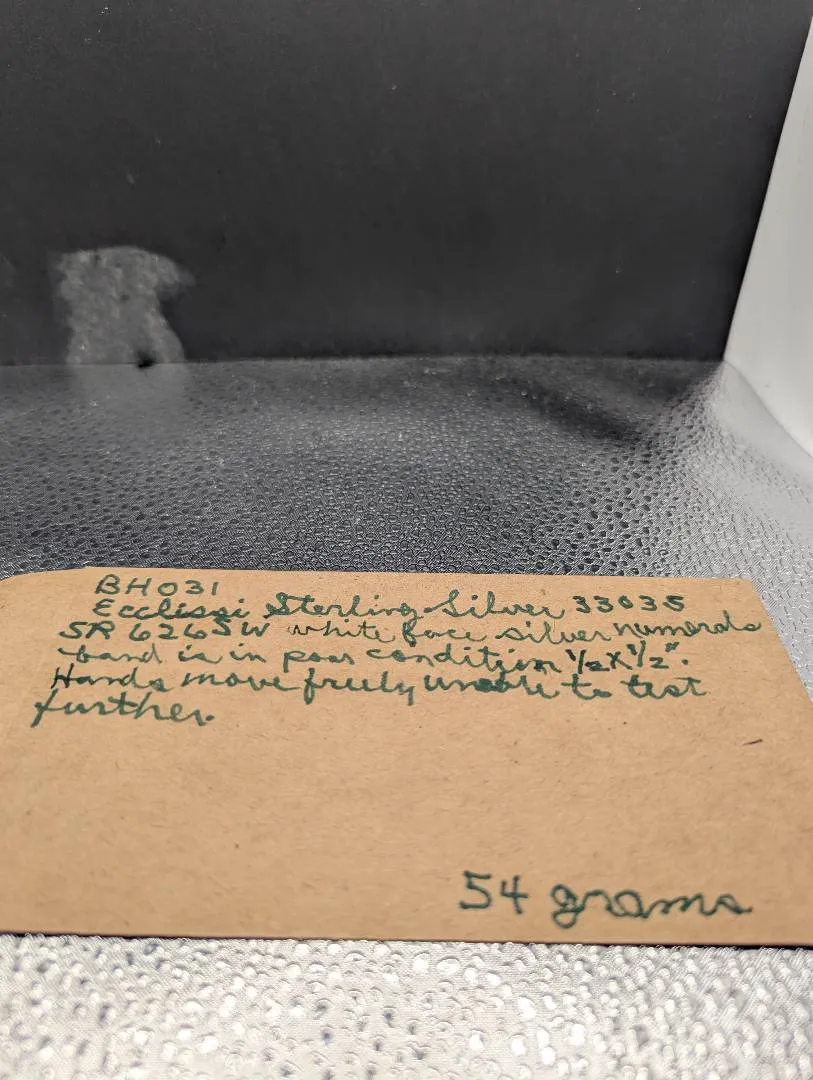 BH031
Ecclissi Sterling Silver 33035
SR 626SW white face silver numerals
band is in poor condition 1/2 x 1/2".
Hands move freely unable to test
further.
54 grams